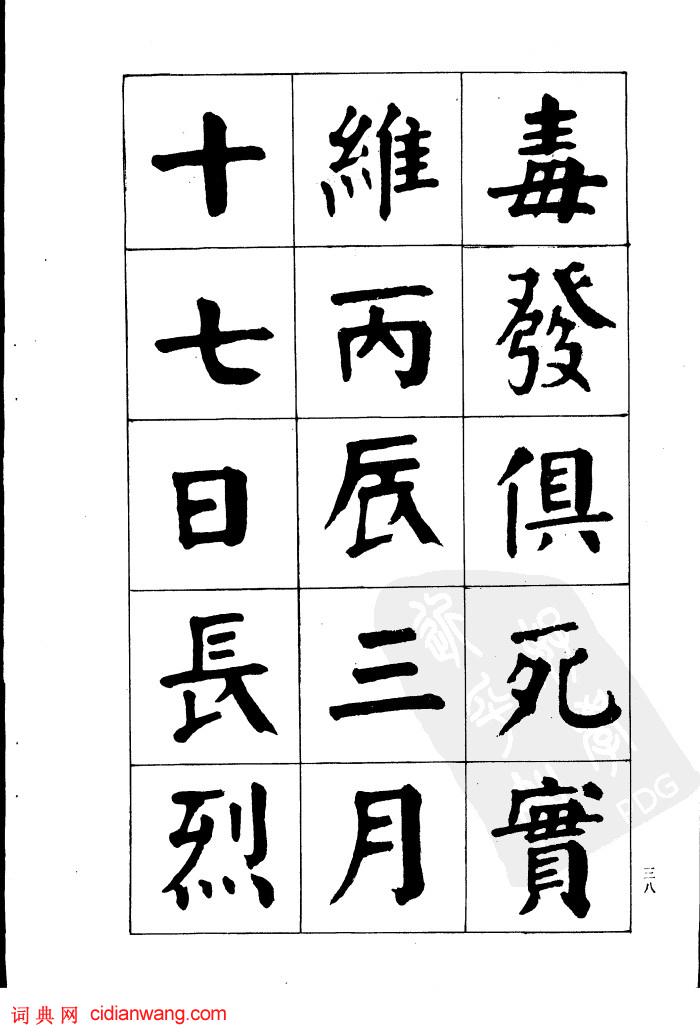 毒發俱死實
維丙辰三月
十七日長烈
三八
PDG
词典网 cidianwang.com